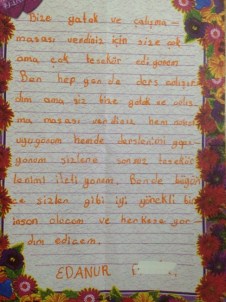 Bize yatak ve çalışma-
masası verdiniz için size çok
ama çok teşekür ediyorem
Ben hep yerde ders ediyor
dım ama siz bize yatak ve çalış
ma masası verdiniz hem onun
uyuyorum hemde derslerimi yapı
yorem sizlere sonsuz teşekür
lerimi iletiyorem. Bende büyün
ce sizler gibi iyi yürekli bir
insan olacam ve herkese yar-
dım edicem.
EDANUR